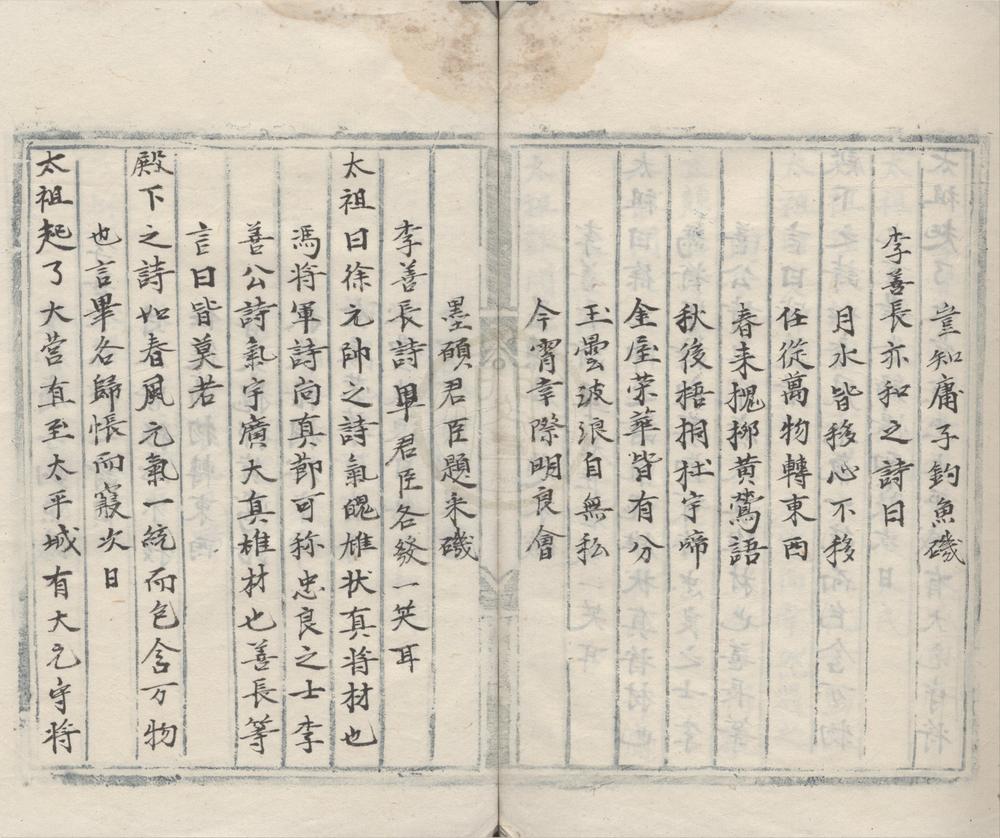 豈知庸子釣魚磯
李善長亦和之詩曰
月水皆移心不移
任從萬物轉東西
春来槐柳黄鶯語
秋後梧桐杜宇啼
金屋荣華皆有分
玉雲波浪自無私
今霄幸際明良會
墨硕君臣題采磯
李善長詩畢君臣各發一笑耳
太祖曰徐元帥之詩氣魄雄状真将材也
馮将軍詩向真節可称忠良之士李
善公詩氣宇廣大真椎材也善長等
言曰皆莫若
殿下之詩如春風元氣一統而包含万物
也言畢各歸帳而寢次日
太祖起了大营直至太平城有大元守将